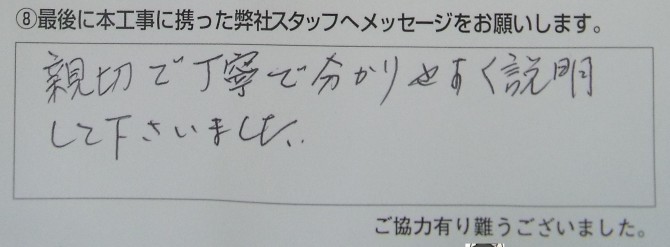 ⑧最後に本工事に携った弊社スタッフへメッセージをお願いします。
親切で丁寧で分かりやすく説明
して下さいました。
ご協力有り難うございました。